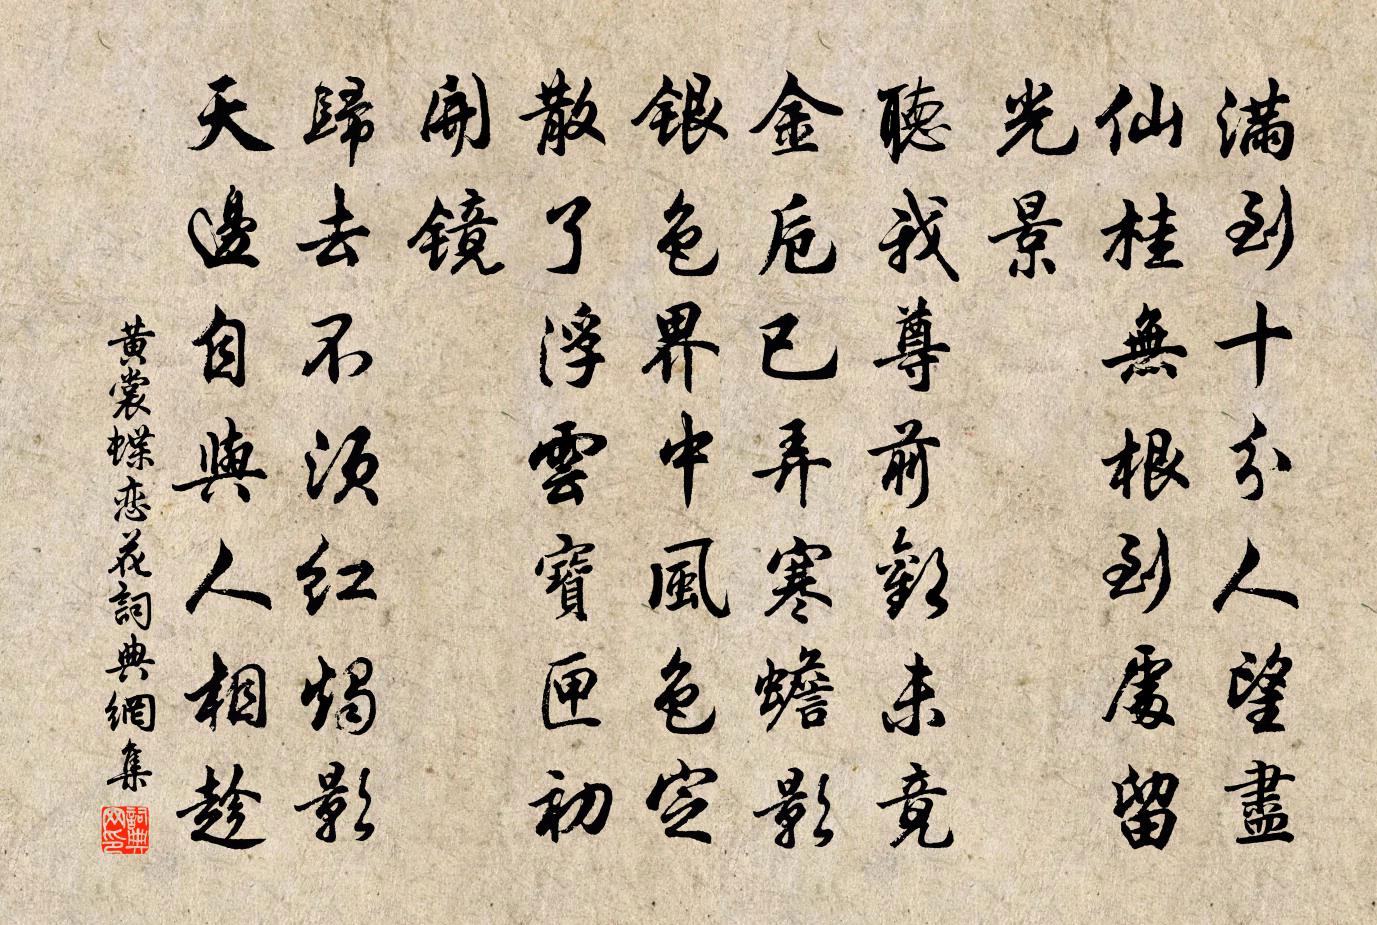 滿到十分人望盡
仙桂無根到處留
光景
聽我尊前歡未竟
金卮已弄寒蟾影
銀色界中風色定
散了浮雲寶匣初
開鏡
歸去不須紅燭影
天邊自與人相趁
黃裳蝶恋花詞典網集
詞典網印